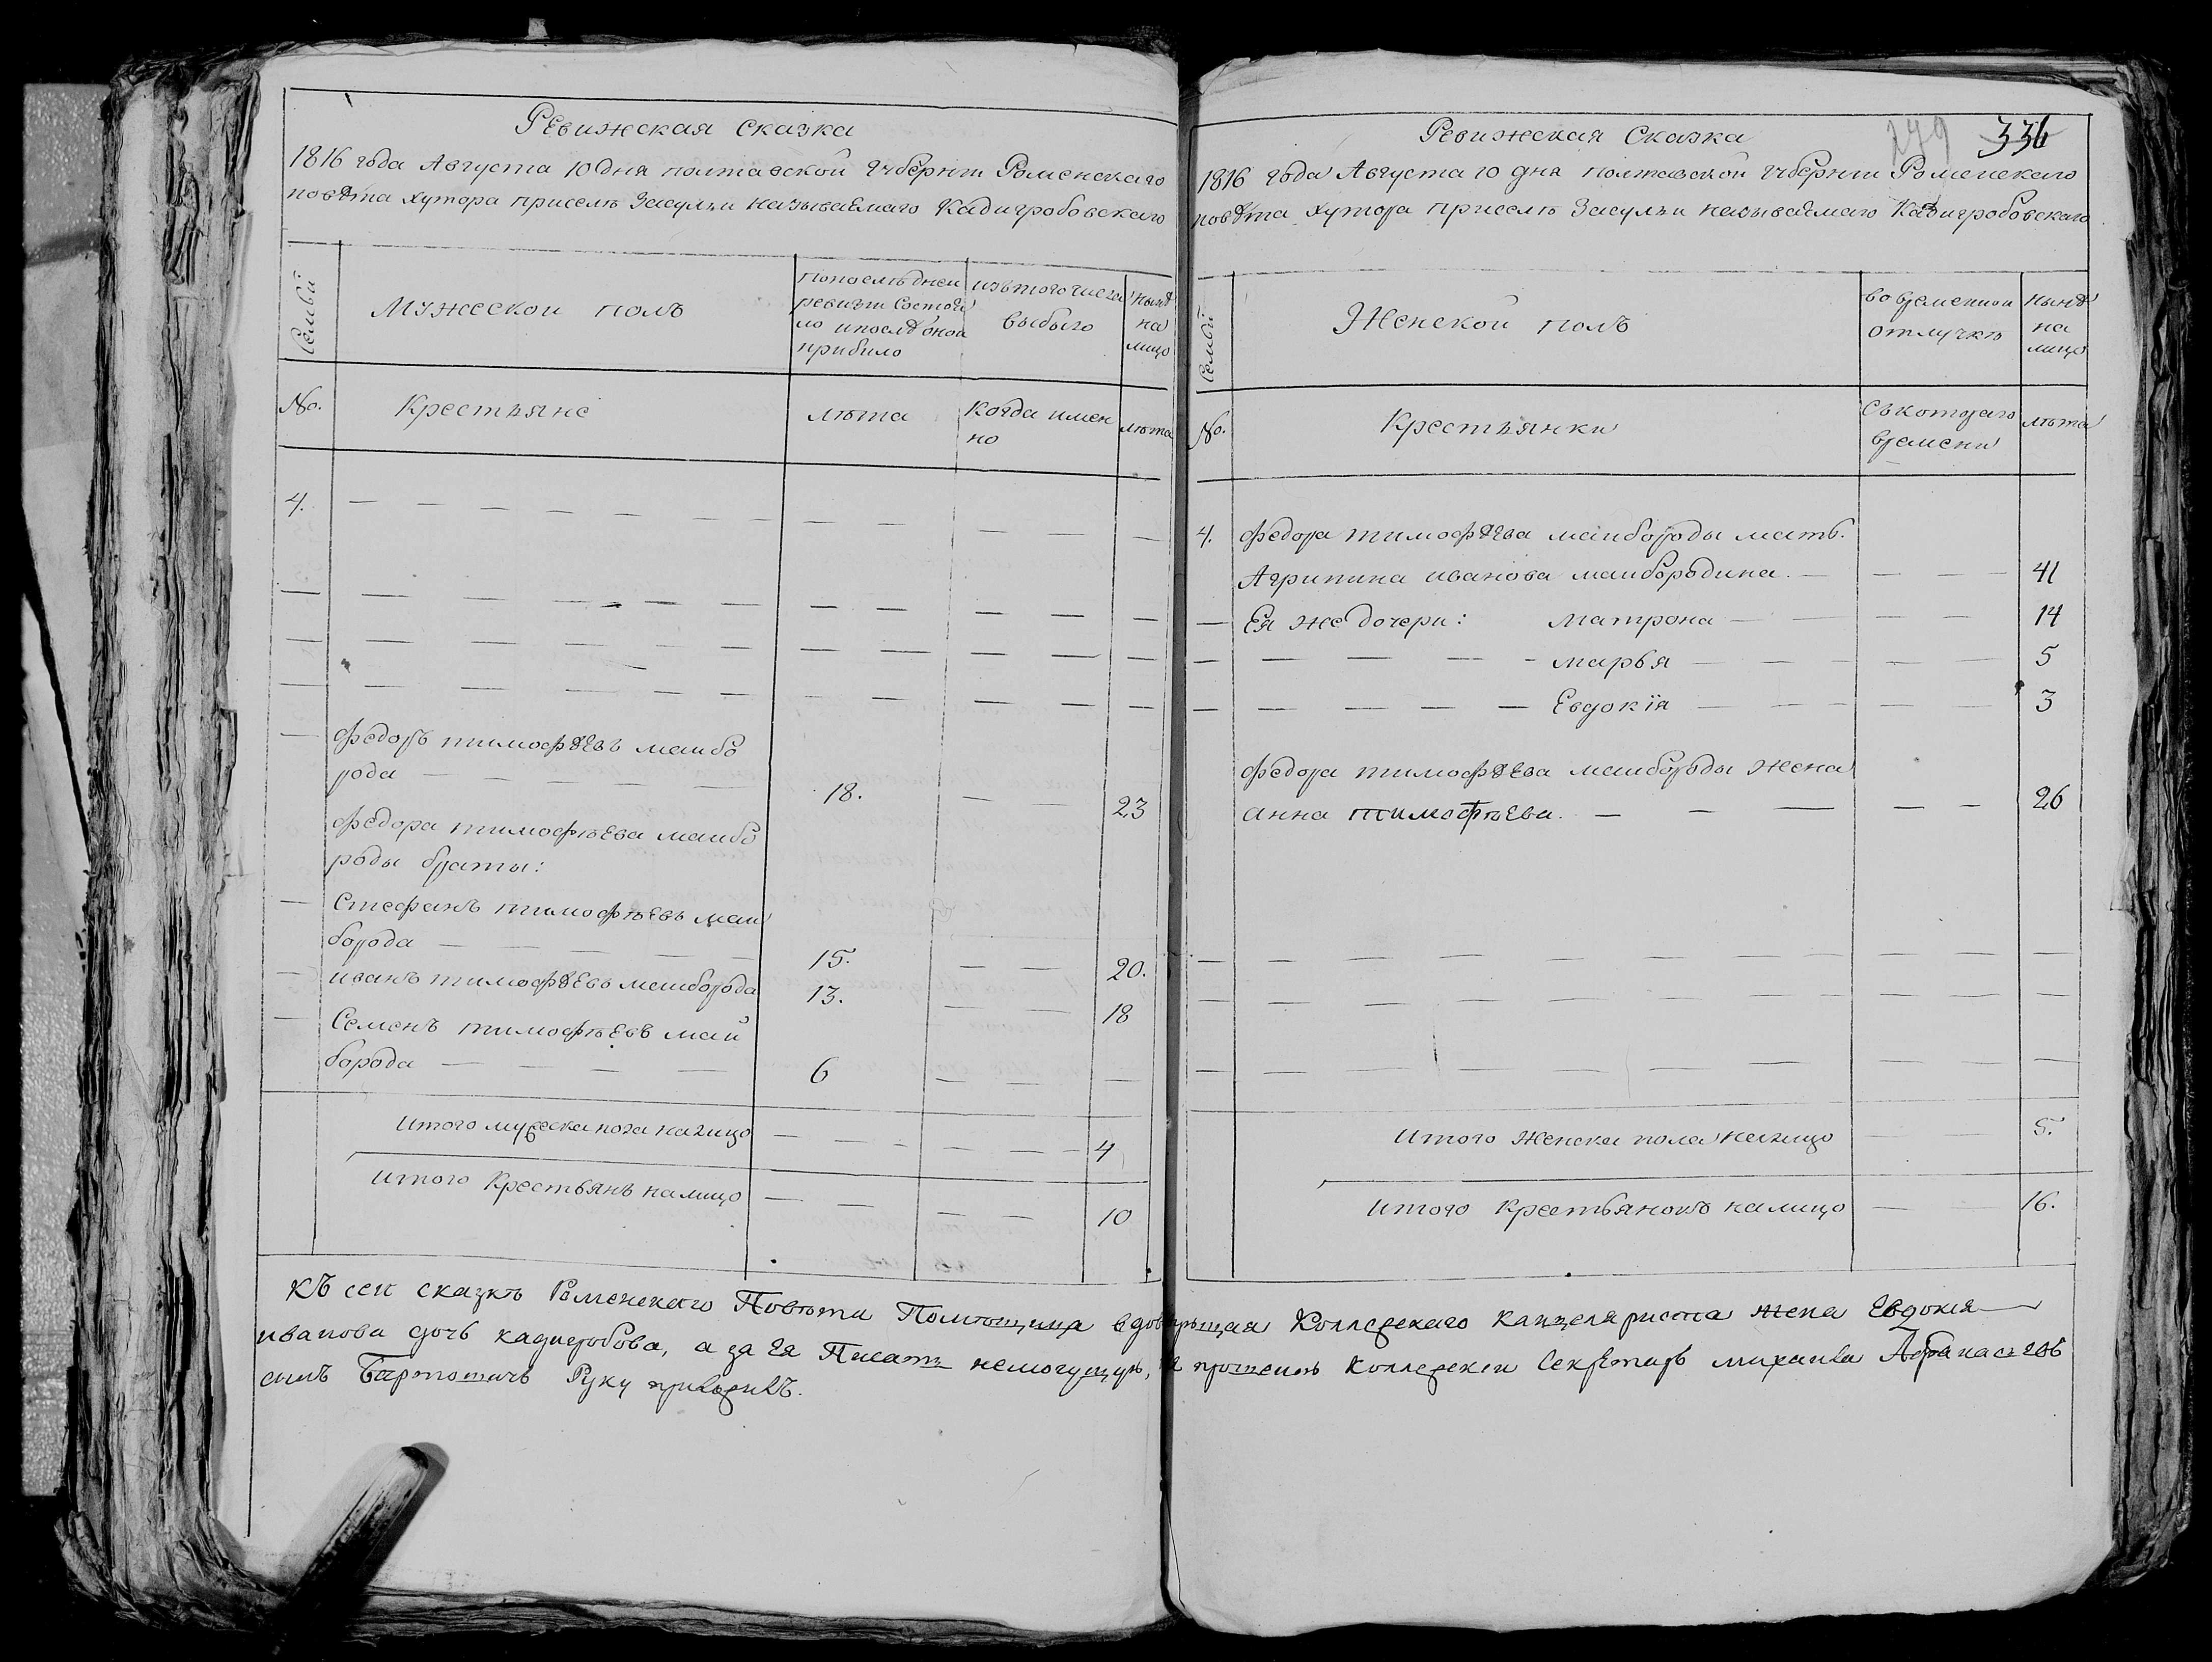 Ревижская Сказка
1816 года Августа 10 дня полтавской губернии Роменскаго
повѣта хутора приселѣ Засульи называемаго Кадигробовскаго
Семьи
Мужеской полъ
попослѣдней
ревизіи состоя
ло и послѣ оной
прибыло
изътого числа
выбыло
нынѣ
на
лицо
No.
Крестьяне
лѣта
Когда имен
но
лѣта
4.
Федоръ тимофѣевъ майбо
рода
18.
23
Федора тимофѣева майбо
роды браты:
Стефанъ тимофѣевъ май
борода
15.
20.
иванъ тимофѣевъ майборода
13.
18
Семенъ тимофѣевъ май
борода
6
Итого мужеска пола налицо
4
Итого Крестьянъ налицо
10
336
279
Ревижская Сказка
1816 года Августа 10 дня полтавской губернии Роменскаго
повѣта хутора приселѣ Засульи называемаго Кадигробовскаго
Семьи
Женской полъ
во временной
отлучкѣ
нынѣ
на
лицо
No.
Крестьянки
съкотораго
времени
лѣта
4.
Федора тимофѣева майбороды мать.
Агрипина иванова майбородина.
41
Ея же дочери: Матрона
14
марья
5
Евдокія
3
Федора тимофѣева майбороды жена
анна тимофѣева.
26
Итого Женска пола налицо
5.
Итого Крестьянокъ налицо
16.
Къ сей сказкѣ Роменскаго Повѣта Помѣщица вдовѣющая Коллежскаго Канцеляриста жена Евдокія
иванова дочь кадигробова, а за Ея Писать немогущую, прошенію Коллежскій Секретарь михаила Афанасіевъ
сынъ Бартошичъ Руку приложилъ.